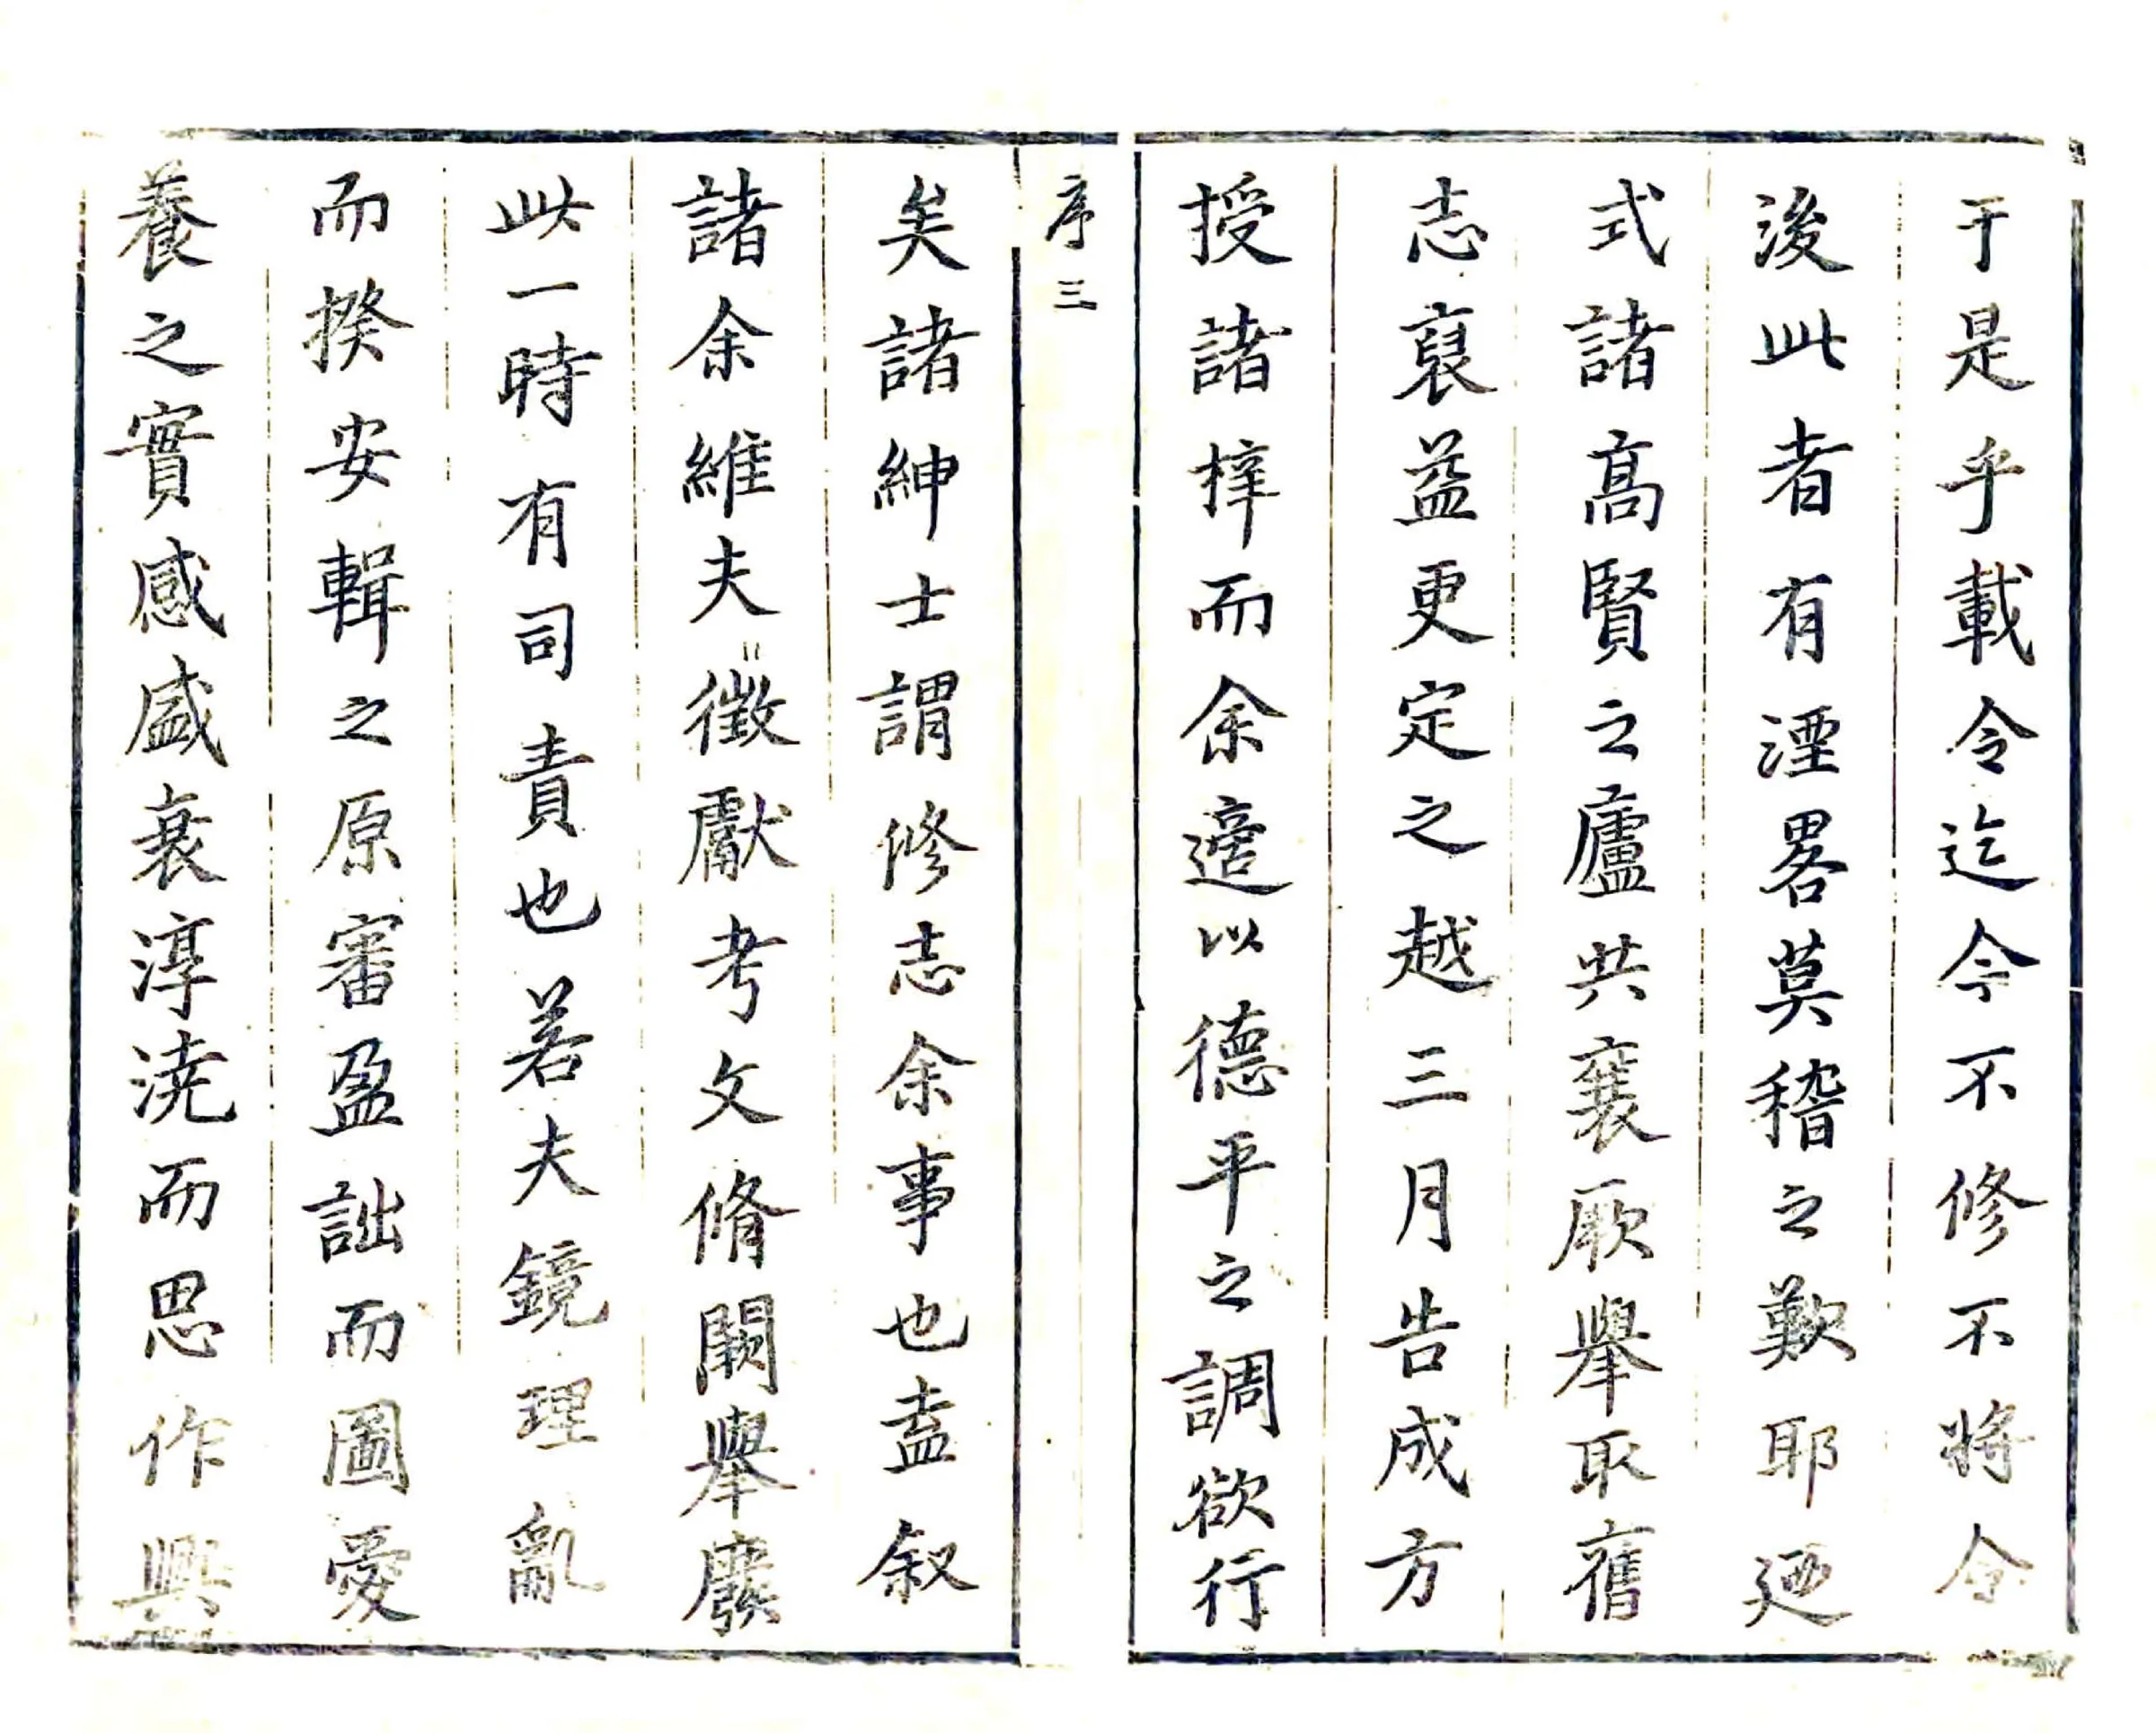 于是乎載令迄今不修不將令
後此者有湮畧莫稽之歎耶廼
式諸高賢之廬共襄厥舉取舊
志裒益更定之越三月告成方
授諸梓而余適以德平之調欲行
序三
矣諸紳士謂修志余事也盍叙
諸余維夫徵獻考文脩闕舉廢
此一時有司責也若夫鏡理亂
而揆安輯之原審盈詘而圖愛
養之實感盛衰淳澆而思作興